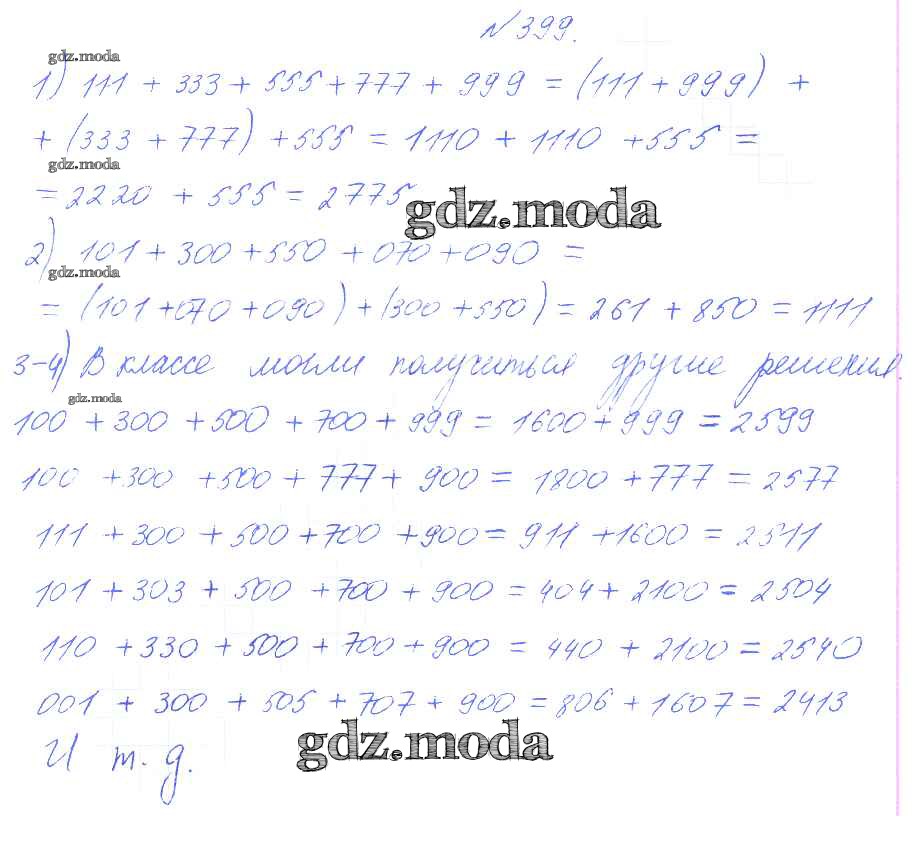 № 399.
gdz.moda
1) 111 + 333 + 555 + 777 + 999 = (111 + 999) +
+ (333 + 777) + 555 = 1110 + 1110 + 555 =
gdz.moda
= 2220 + 555 = 2775
gdz.moda
2) 101 + 300 + 550 + 070 + 090 =
gdz.moda
= (101 + 070 + 090) + (300 + 550) = 261 + 850 = 1111
3-4) В классе могли получиться другие решения.
gdz.moda
100 + 300 + 500 + 700 + 999 = 1600 + 999 = 2599
100 + 300 + 500 + 777 + 900 = 1800 + 777 = 2577
111 + 300 + 500 + 700 + 900 = 911 + 1600 = 2511
101 + 303 + 500 + 700 + 900 = 404 + 2100 = 2504
110 + 330 + 500 + 700 + 900 = 440 + 2100 = 2540
001 + 300 + 505 + 707 + 900 = 806 + 1607 = 2413
И т. д.
gdz.moda